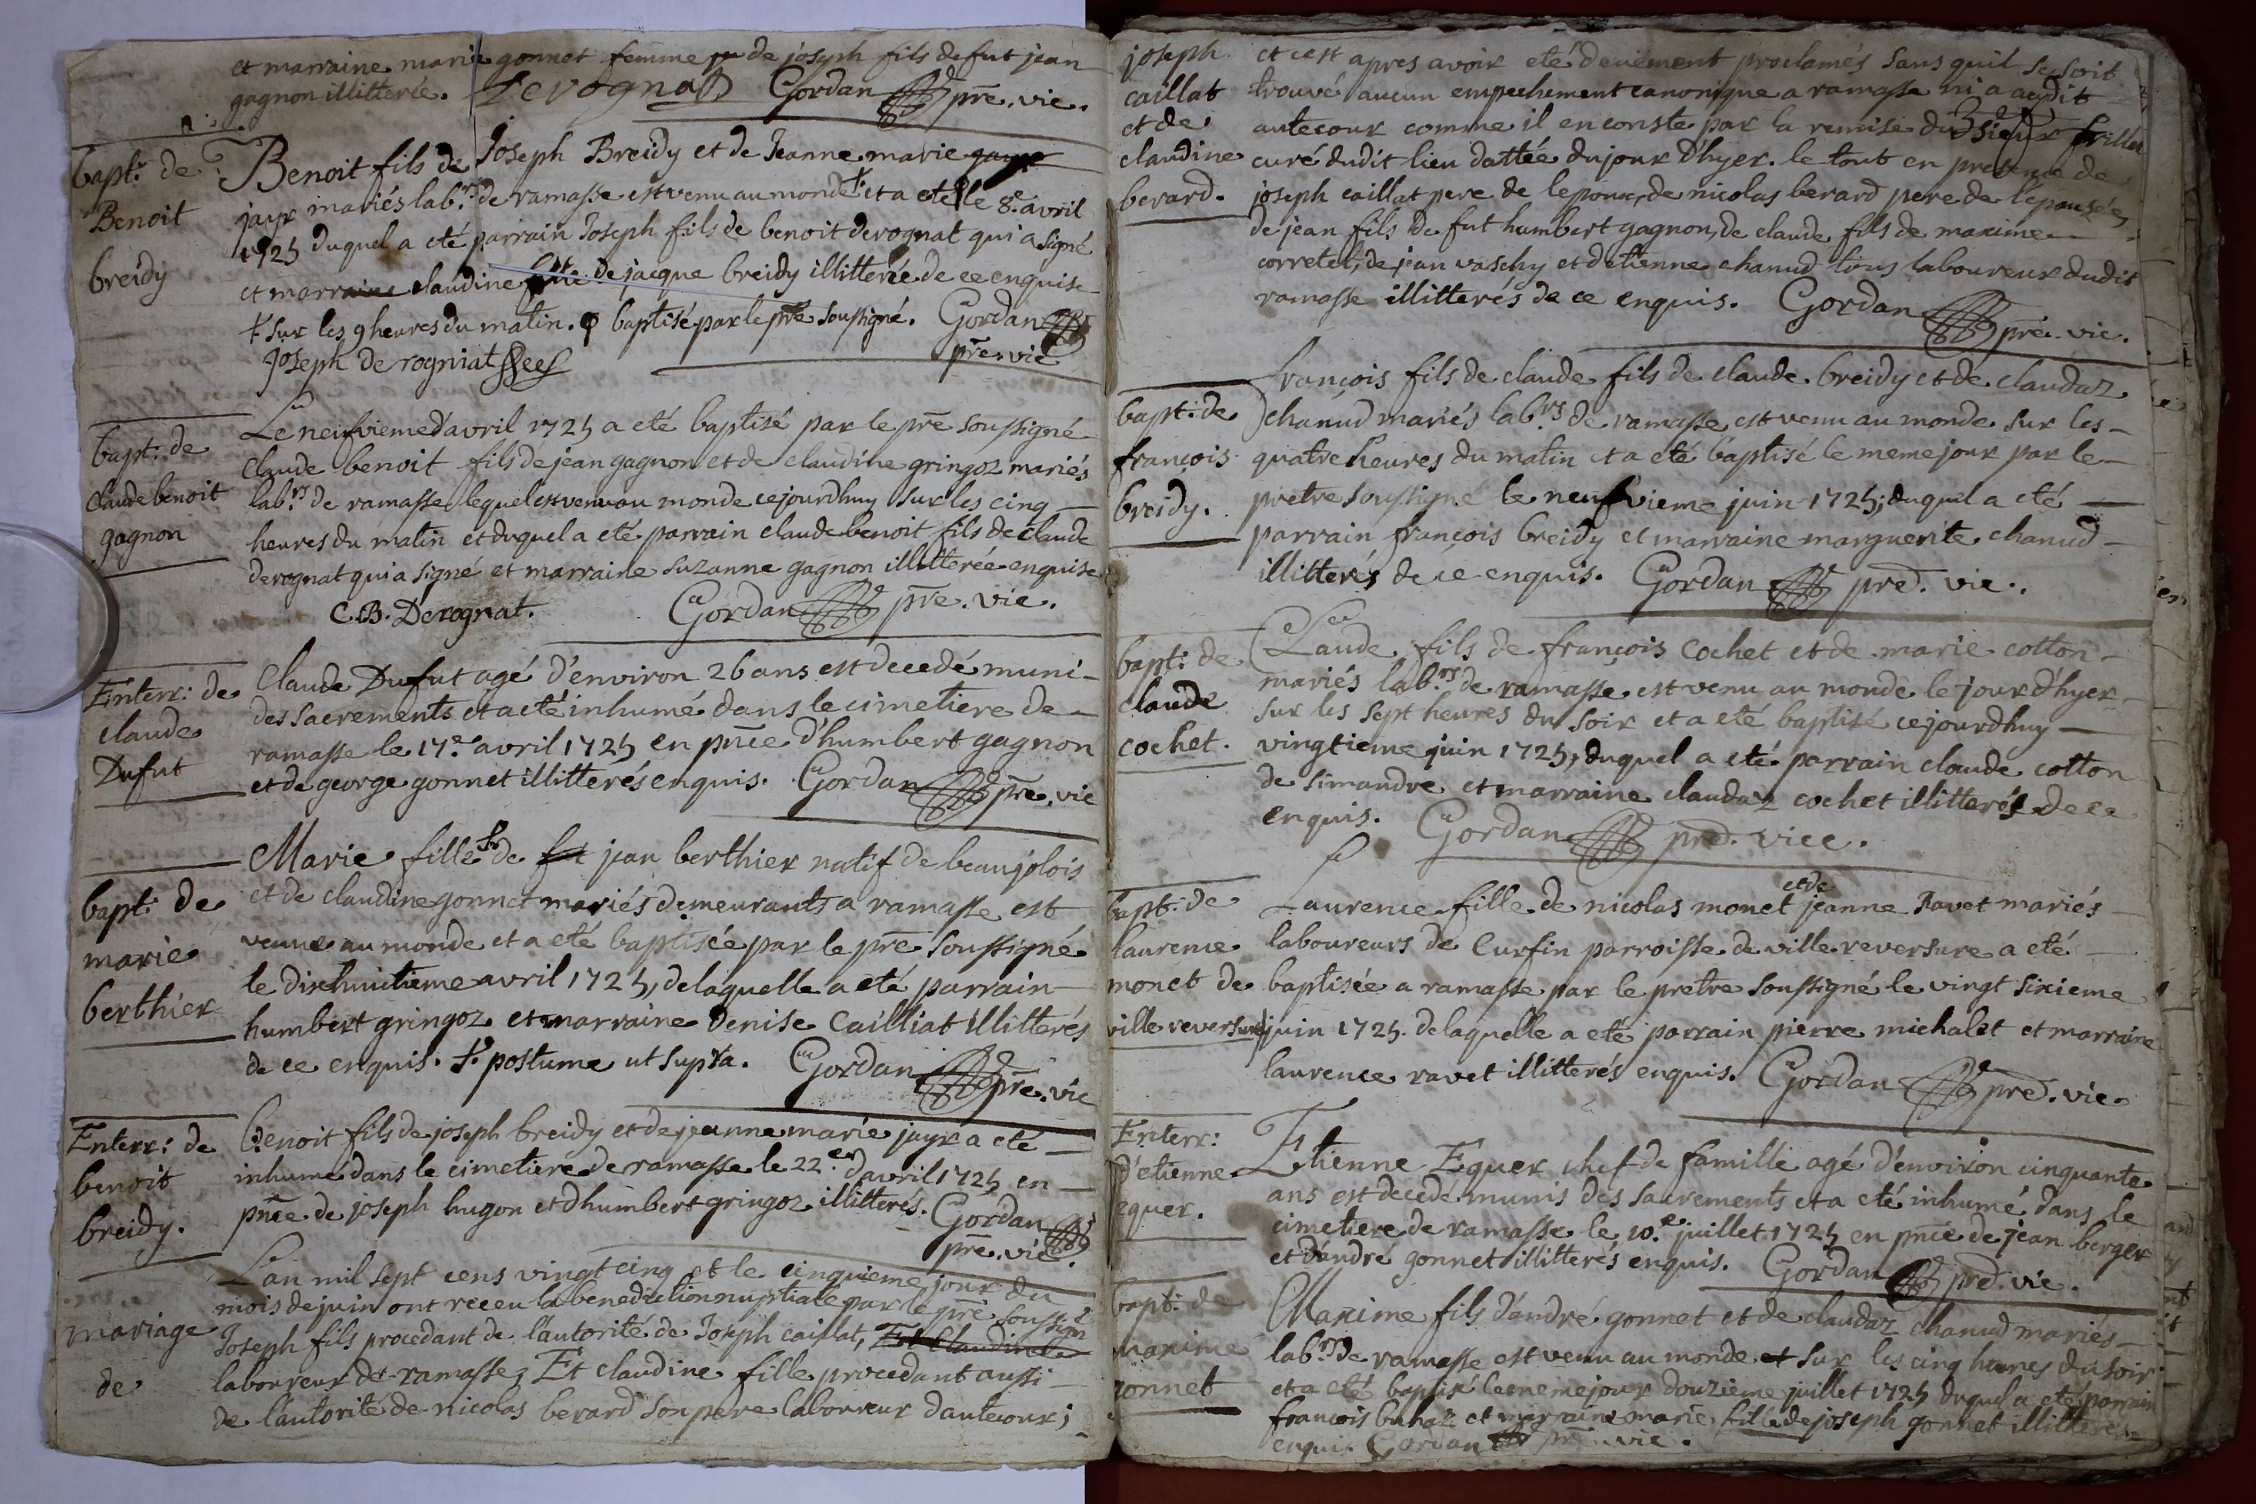 et marraine marie gonnet femme de joseph fils de fut jean
gagnon illitterée. Derognat Gordan pre. vic.
bapt: de
Benoit
breidy
Benoit fils de Joseph Breidy et de Jeanne marie
jayr mariés lab.rs de ramasse est venu au monde ┼ et a eté le 8.e avril
1725 duquel a eté parrain Joseph fils de benoit derognat qui a signé
et marraine claudine fille de jacque breidy illitterée de ce enquise
┼ sur les 9 heures du matin. φ baptisé par le pre soussigné. Gordan
Joseph De rogniat pre. vic
bapt: de
claude benoit
gagnon
Le neufvieme d'avril 1725 a eté baptisé par le pre soussigné
claude benoit fils de jean gagnon et de claudine gringoz mariés
lab.rs de ramasse lequel est venu au monde cejourdhuy sur les cinq
heures du matin et duquel a eté parrain claude benoit fils de claude
derognat qui a signé et marraine suzanne gagnon illitterée enquise
C.B. Derognat. Gordan pre. vic.
Enterr: de
claude
Dufut
Claude Dufut agé d'environ 26 ans est decedé muni
des sacrements et a eté inhumé dans le cimetiere de
ramasse le 17.e avril 1725 en pnce d'humbert gagnon
et de george gonnet illitterés enquis. Gordan pre. vic
bapt: de
marie
berthier
Marie fille de jean berthier natif de beaujolois
et de claudine gonnet mariés demeurants a ramasse est
venue au monde et a eté baptisée par le pre soussigné
le dixhuitieme avril 1725, de laquelle a eté parrain
humbert gringoz et marraine denise Cailliat illitterés
de ce enquis. postume ut supra. Gordan pre. vic
Enterr: de
benoit
breidy.
Benoit fils de joseph breidy et de jeanne marie jayr a eté
inhumé dans le cimetiere de ramasse le 22.e d'avril 1725 en
pnce de joseph hugon et d'humbert gringoz illitterés. Gordan
pre. vic.
mariage
de
L'an mil sept cens vingt cinq et le cinquieme jour du
mois de juin ont receu la benediction nuptiale par le pre soussigné
Joseph fils procedant de l'autorité de Joseph caillat, Et Claudine
laboureur de ramasse, Et claudine fille procedant aussi
de l'autorité de nicolas berard son pere laboureur d'autecour;
joseph
caillat
et de
claudine
berard.
et cest apres avoir eté deuëment proclamés sans quil se soit
trouvé aucun empechement canonique a ramasse ni a
autecour comme il en conste par la remise du sieur
curé dudit lieu dattée du jour d'hyer. le tout en presence de
joseph caillat pere de lepoux, de nicolas berard pere de l'epousée,
de jean fils de fut humbert gagnon, de claude fils de maxime
corretel, de jean vaschy et d'etienne chanud tous laboureur dudit
ramasse illitterés de ce enquis. Gordan pre. vic.
bapt: de
françois
breidy.
françois fils de claude fils de claude breidy et de claudaz
chanud mariés lab.rs de ramasse est venu au monde sur les
quatre heures du matin et a eté baptisé le meme jour par le
pretre soussigné le neufvieme juin 1725; duquel a eté
parrain françois breidy et marraine marguerite chanud
illitterés de ce enquis. Gordan pred. vic.
bapt: de
claude
cochet.
Claude fils de françois Cochet et de marie cotton
mariés lab.rs de ramasse est venu au monde le jour d'hyer
sur les sept heures du soir et a eté baptisé cejourdhuy
vingtieme juin 1725, duquel a eté parrain claude cotton
de simandre et marraine claudaz cochet illitterés de ce
enquis. Gordan pred. vice.
bapt: de
laurence
monet de
ville reversure
Laurence fille de nicolas monet et de jeanne Ravet mariés
laboureurs de Curfin parroisse de ville reversure a eté
baptisée a ramasse par le pretre soussigné le vingt sixieme
juin 1725. de laquelle a eté parrain pierre michalet et marraine
laurence ravet illitterés enquis. Gordan pred. vic.
Enterr:
d'etienne
equer.
Etienne Equer chef de famille agé d'environ cinquante
ans est decedé munis des sacrements et a eté inhumé dans le
cimetiere de ramasse le 10.e juillet 1725 en pnce de jean berger
et d'andré gonnet illitterés enquis. Gordan pred. vic.
bapt: de
maxime
gonnet
Maxime fils d'andré gonnet et de claudaz chanud mariés
lab.rs de ramasse est venu au monde et sur les cinq heures du soir
et a eté baptisé le meme jour douzieme juillet 1725 duquel a eté parrain
françois buhaz et marraine marie fille de joseph gonnet illitterés
enquis. Gordan pre. vic.